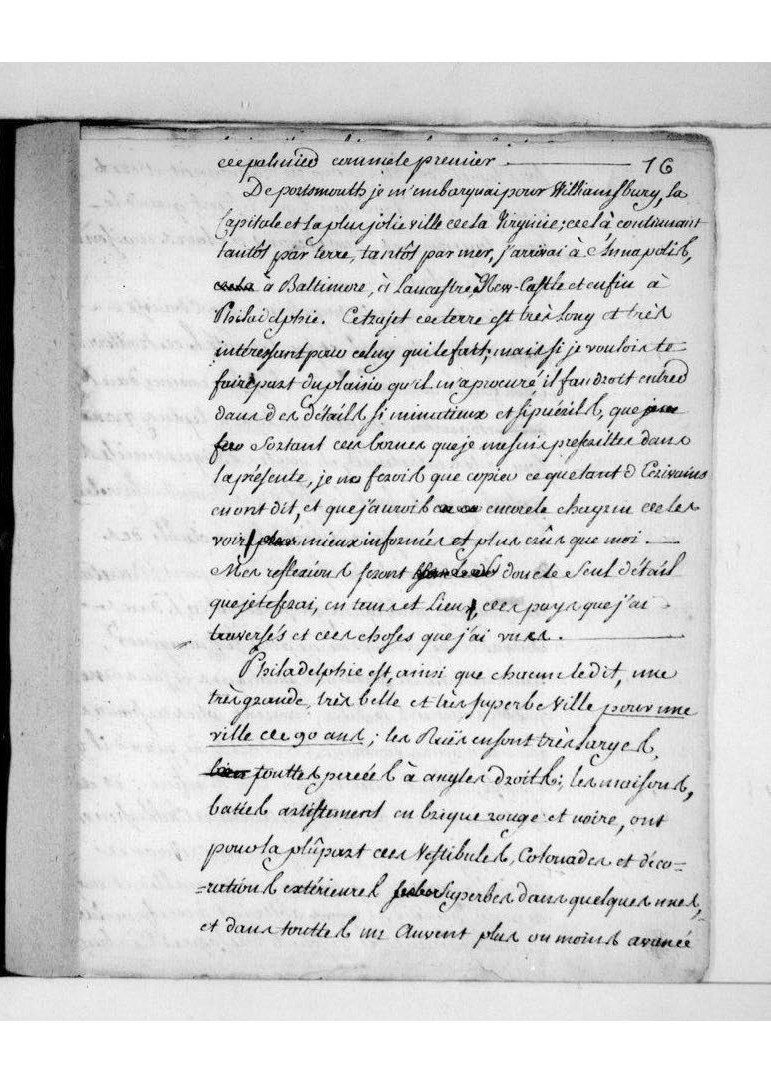 de palmier comme le premier 16
De portsmouth je m'embarquai pour Williamsburg, la
Capitale et la plus jolie ville de la Virginie; de là continuant
tantôs par terre, tantôs par mer, j'arrivai à Annapolis,
à Baltimore, à Lancastre, à New-Castle et enfin à
Philadelphie. Ce trajet de terre est très long et très
intéressant pour celuy qui le fait; mais si je voulois te
faire part du plaisir qu'il m'a procuré il faudroit entrer
dans des détails si minutieux et si puérils, que je ne
fer Sortant des bornes que je me suis prescrittes dans
la présente, je ne ferois que copier ce que tant d'Ecrivains
en ont dit, et que j'aurois encore le chagrin de les
voir plus mieux informés et plus crûs que moi.
Mes reflexions feront donc le seul détail
que je te ferai, en tems et lieux, des pays que j'ai
traversés et des choses que j'ai vues.
Philadelphie est, ainsi que chacun le dit, une
très grande, très belle et très superbe Ville pour une
ville de 90 ans; les Ruës en sont très larges,
bien touttes percées à angles droits; les maisons,
baties artistement en brique rouge et noire, ont
pour la plûpart des Vestibules, Colonades et déco-
-rations extérieures Superbes dans quelques unes,
et dans touttes un Auvent plus ou moins avancé